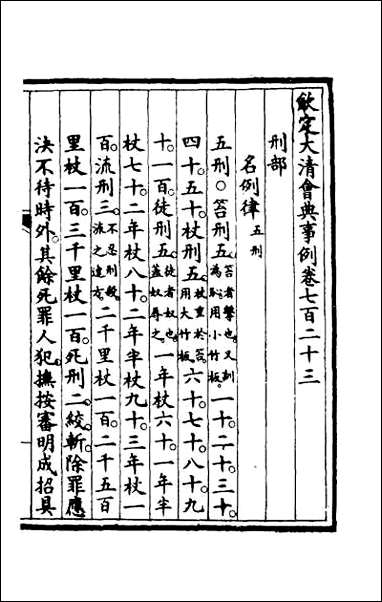 欽定大清會典事例卷七百二十三
刑部
名例律五刑
五刑○笞刑五。笞者擊也。又訓為恥用小竹板。一十。二十。三十。
四十。五十。杖刑五。杖重於笞。用大竹板。六十。七十。八十。九
十。一百。徒刑五。徒者奴也。蓋奴辱之。一年杖六十。一年半
杖七十。二年杖八十。二年半杖九十。三年杖一
百。流刑三。不忍刑殺。流之遠方。二千里杖一百。二千五百
里杖一百。三千里杖一百。死刑二。絞。斬。除罪應
決不待時外。其餘死罪人犯。撫按審明成招具